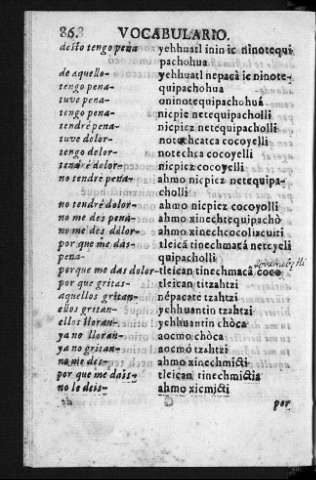 863 VOCABULARIO.
desto tengo pena yehhuatl inin ic ninotequi
pachohua
de aquello- yehhuatl nepacà ic ninote-
tengo pena- quipachohua
tuve pena- oninotequipachohuá
tengo pena- nicpie netequipacholli
tendré pena- nicpiez netequipacholli
tuve dolor- notechcatca cocoyelli
tengo dolor- notechca cocoyelli
tendré dolor- nicpiez cocoyelli
no tendré pena- ahmo nicpiez netequipa-
cholli
no tendré dolor- ahmo nicpiez cocoyolli
no me des pena- ahmo xinechtequipachò
no me des dolor- ahmo xinechcocoliacuiti
por que me das- tleicā tinechmacā neteyeli
pena- quipacholli
porque me das dolor- tleican tinechmacā coco
por que gritas- tleican titzahtzi
aquellos gritan- nèpacate tzahtzi
ellos gritan- yehhuantin tzahtzi
ellos lloran- yehhuantin chòca
ya no lloran- aocmo chòca
ya no gritan- aocmò tzahtzi
no me des- ahmo xinechmicti
por que me dais- tleican tinechmictia
no le deis- ahmo xicmicti
por